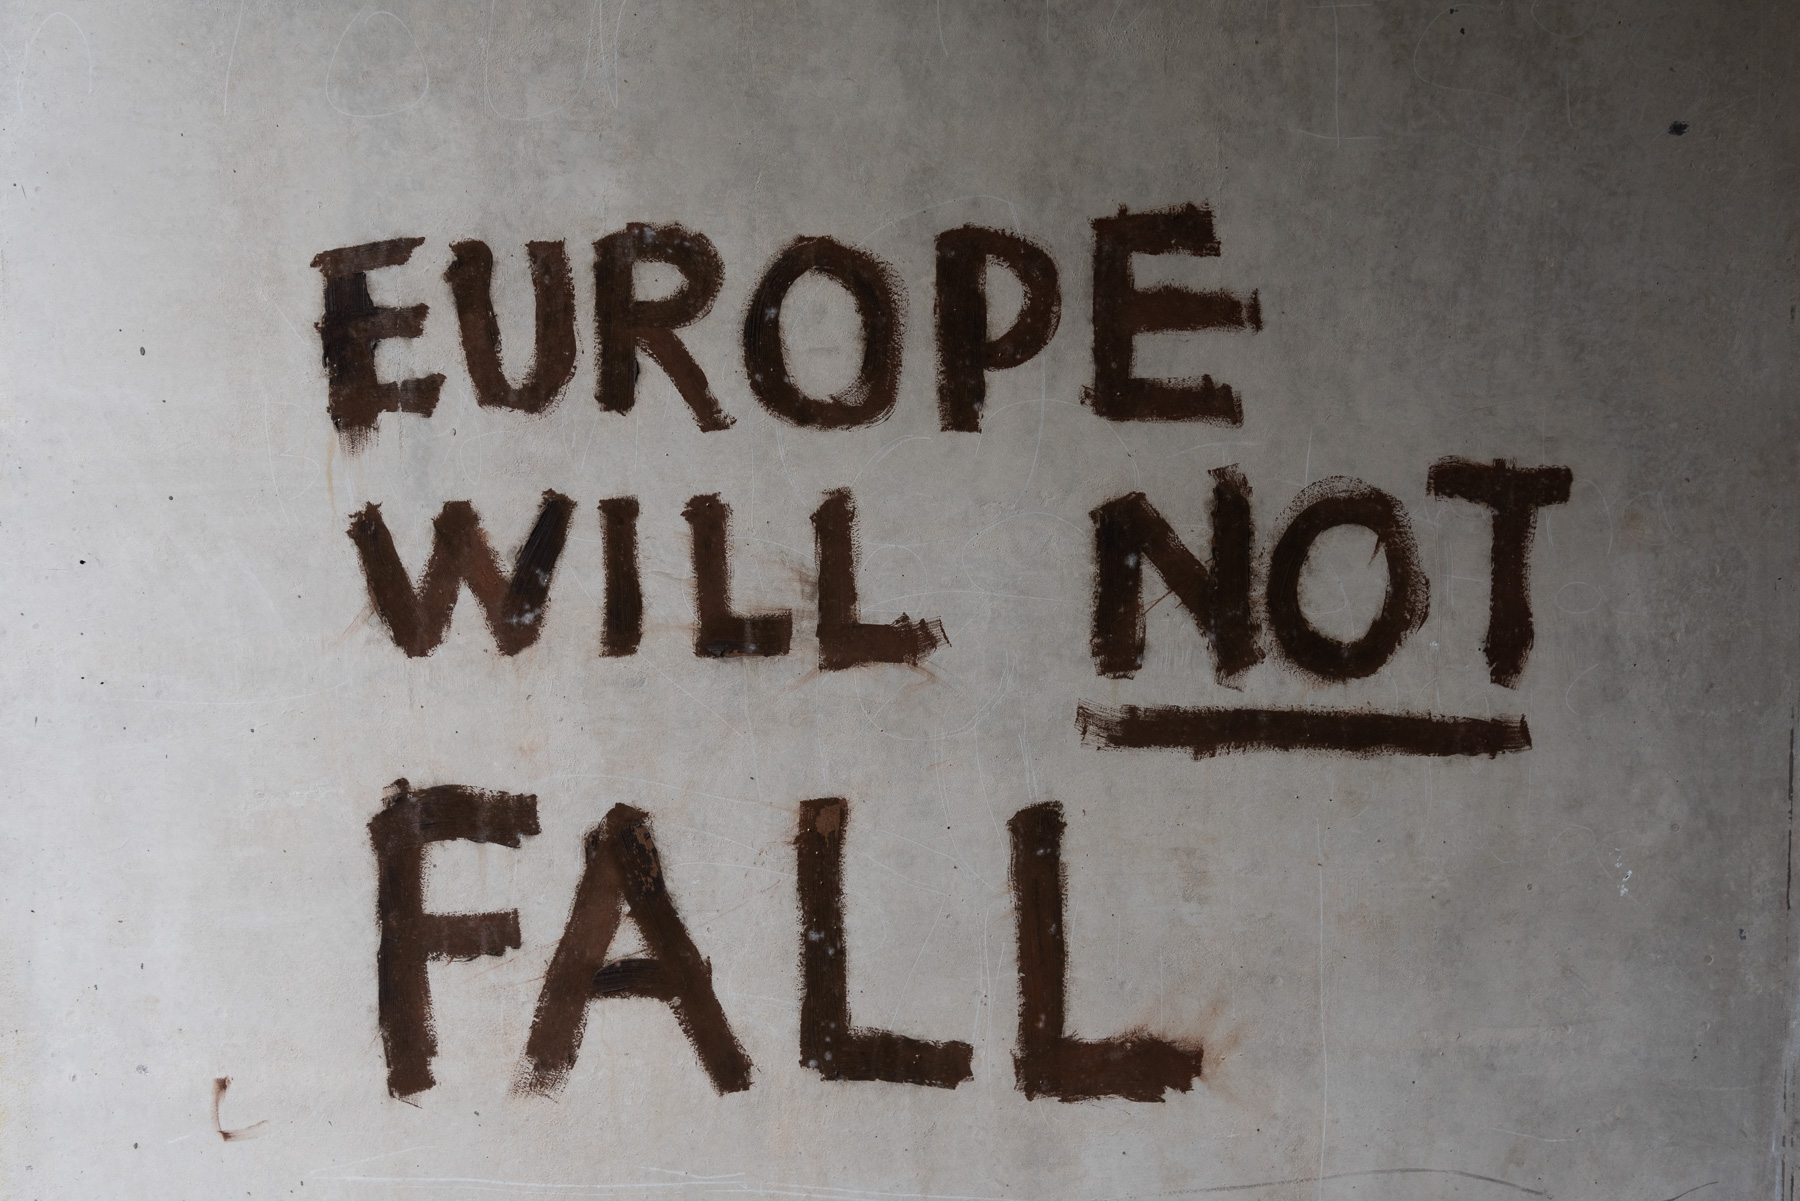 EUROPE
WILL NOT
FALL